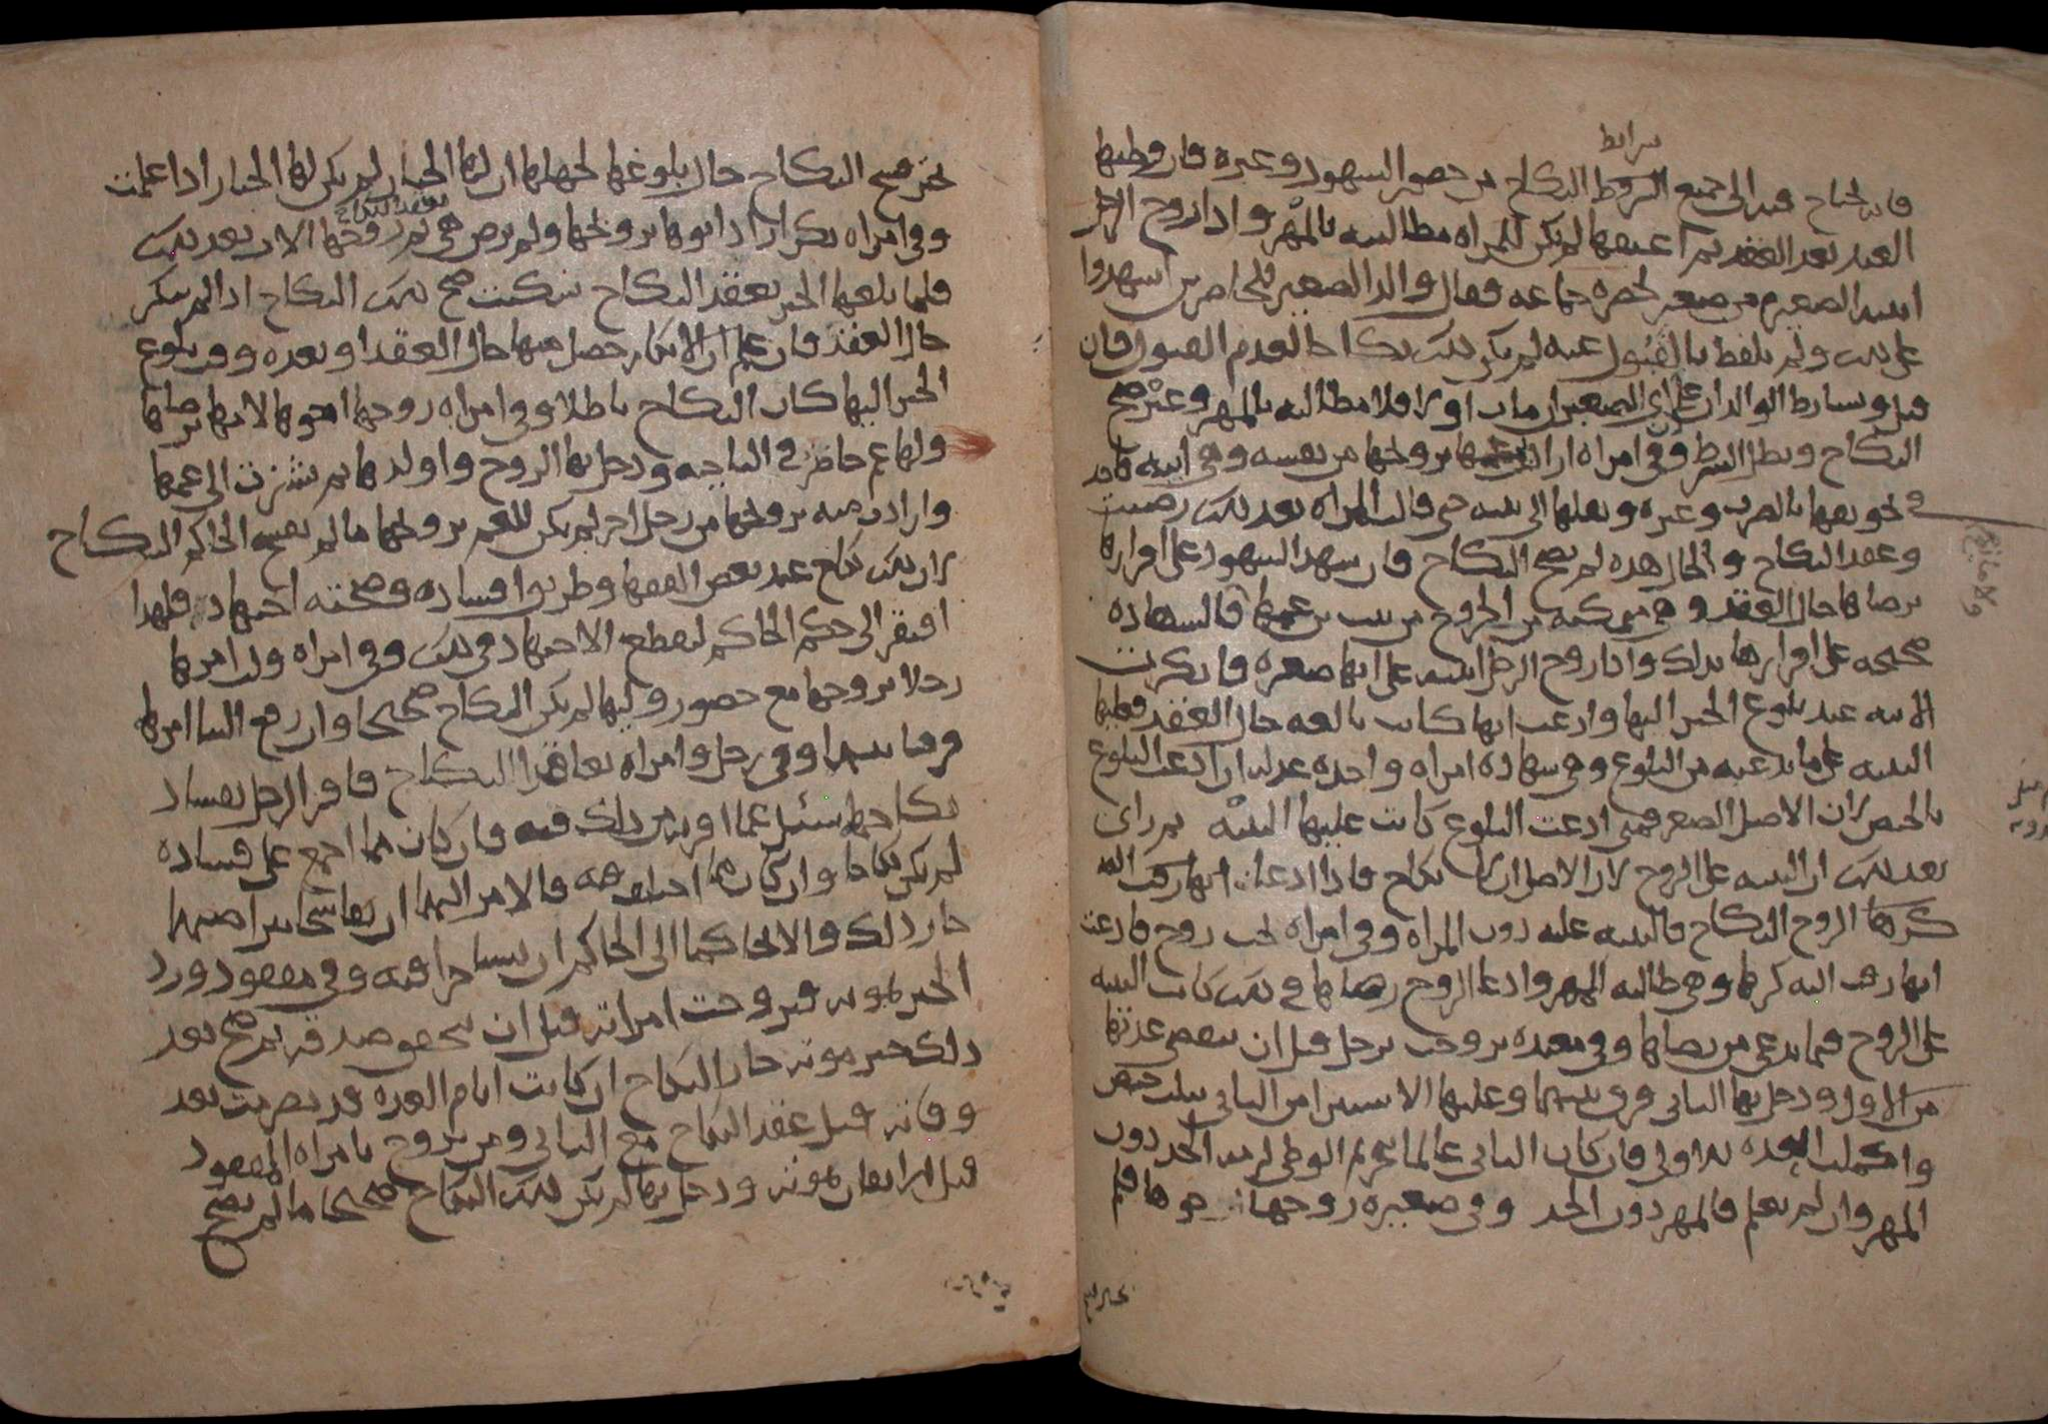 شرايط
فانه يحتاج فيه الى جميع الشروط النكاح من حضور الشهود وغيره فان وطيها
العبد بعد العقد ثم اعتقها لم يكن للمراه مطالبته بالمهر واذا زوج الرجل
ابنته الصغيره من صغير بحضره جماعه فقال والد الصغير للحاضرين اشهدوا
على ذلك ولم يلفظ بالقبول عنه لم يكن ذلك نكاحا لعدم القبول فان
قبل وتشارط الوالدان على ان الصغير ان مات اولا فلا مطالبه بالمهر وغيره صح
النكاح وبطل الشرط وفي امراه اراد ابن عمها تزويجها من نفسه وهي ابيه فاخذ
في تخويفها بالضرب وغيره ونقلها الى بيته حتى قالت المراه بعد ذلك رضيت
وعقد النكاح والحال هذه لم يصح النكاح فان شهد الشهود على اقرارها
برضاها حال العقد وهي متمكنه من الخروج من بيت بن عمها فالشهاده
صحيحه على اقرارها بذلك واذا زوج الرجل ابنته على انها صغيره فانكرت
الابنه عند بلوغ الخبر اليها وادعت انها كانت بالغه حال العقد فعليها
البينه على ما تدعيه من البلوغ وهي شهاده امراه واحده عدله ان ادعت البلوغ
بالحيض لان الاصل الصغر فمتى ادعت البلوغ كانت عليها البينه ثم راى
بعد ذلك ان البينه على الزوج لان الاصل ان لا نكاح فاذا ادعا انها زفت اليه
كرها الزوج النكاح فالبينه عليه دون المراه وفي امراه تحت زوج فادعت
انها زفت اليه كرها وهي طالبه المهر وادعا الزوج رضاها في ذلك كانت البينه
على الزوج فيما يدعي من رضاها وفي معتده تزوجت برجل قبل ان تنقضي عدتها
من الاول ودخل بها الثاني فرق بينهما وعليها الاستبرا من الثاني بثلث حيض
واكملت العده للاول فان كان الثاني عالما بتحريم الوطي لزمه الحد دون
المهر وان لم يعلم فالمهر دون الحد وفي صغيره زوجها اخوها فلم
تختر فسخ
تختر فسخ النكاح حال بلوغها لجهلها ان لها الخيار لم يكن لها الخيار اذا علمت
بعقد النكاح
وفي امراه بكر اراد ابوها تزويجها ولم ترض هي ثم زوجها الاب بعد ذلك
فلما بلغها الخبر بعقد النكاح سكتت صح ذلك النكاح اذا لم تنكر
حال العقد فان علم ان الانكار حصل منها حال العقد او بعده وقت بلوغ
الخبر اليها كان النكاح باطلا وفي امراه زوجها اخوها لامها برضاها
ولها عم حاضر في الناحيه ودخل بها الزوج واولدها ثم نشزت الى عمها
وارادت منه تزويجها من رجل اخر لم يكن للعم تزويجها ما لم يفسخ الحاكم النكاح
لان ذلك نكاح عند بعض الفقها وطريق افساده وصحته اجتهاد فلهذا
افتقر الى حكم الحاكم ليقطع الاجتهاد في ذلك وفي امراه ولت امرها
رجلا تزوجها مع حضور وليها لم يكن النكاح صحيحا وان رفع الينا امرها
فرقنا بينهما وفي رجل وامراه تعاقدا النكاح فاقر الرجل بفساد
نكاحهما سئل عما اقر به من ذلك فيه فان كان مما اجمع على فساده
لم يكن نكاحا وان كان مما اختلف فيه فالامر اليهما ان تفاسخا بتراضيهما
جاز ذلك والا تحاكما الى الحاكم ان تشاجرا فيه وفي مفقود ورد
الخبر بموته فتزوجت امراته قبل ان تحقق صدقه ثم صح بعد
ذلك خبر موته جاز النكاح ان كانت ايام العده قد تصرمت بعد
وفاته قبل عقد النكاح مع الثاني ومن تزوج بامراه المفقود
قبل الايقان بموته ودخل بها لم يكن ذلك النكاح صحيحا ما لم يصح